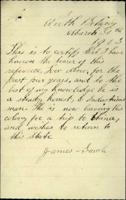 March 30th
1903
This is to certify that I have
known the bearer of this
reference, for the
past four years, and by the
best of my knowledge he is
a steady honest, & industrious
man. He is now leaving this
for a trip to China,
and wishes to return to
this State
James